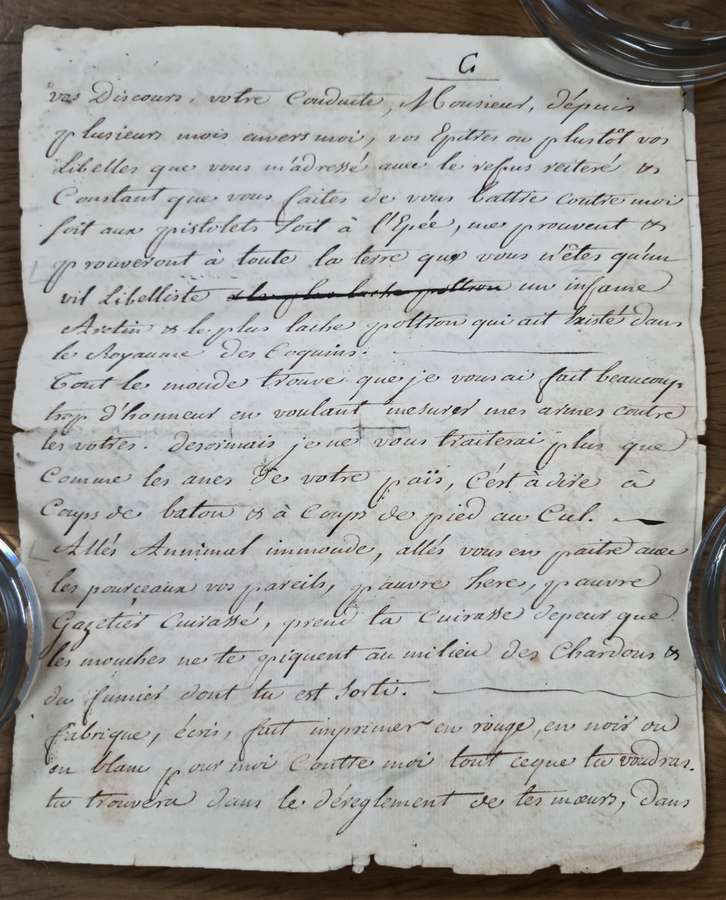 G
vos Discours, votre Conduite, Monsieur, dépuis
plusieurs mois envers moi, vos Epitres ou plustôt vos
Libelles que vous m'adressé avec le refus reiteré &
Constant que vous faites de vous battre contre moi
soit aux pistolets soit à l'Epée, me prouvent &
prouveront à toute la terre que vous n'êtes qu'un
vil Libelliste un infame
Aretin & le plus lache poltron qui ait Existé dans
le Royaume des Coquins.
Tout le monde trouve que je vous ai fait beaucoup
trop d'honneur en voulant mesurer mes armes contre
les votres. desormais je ne vous traiterai plus que
comme les anes de votre païs, c'est à dire à
Coups de baton & à Coups de pied au Cul.
Allés Annimal immonde, allés vous en paitre avec
les pourceaux vos pareils, pauvre here, pauvre
Gazetier Cuirassé, prend ta Cuirasse de peur que
les mouches ne te piquent au milieu des Chardons &
du fumier dont tu est sorti.
fabrique, écris, fait imprimer en rouge, en noir ou
en blanc pour moi Contre moi tout ce que tu voudras.
tu trouvera dans le déreglement de tes mœurs, dans